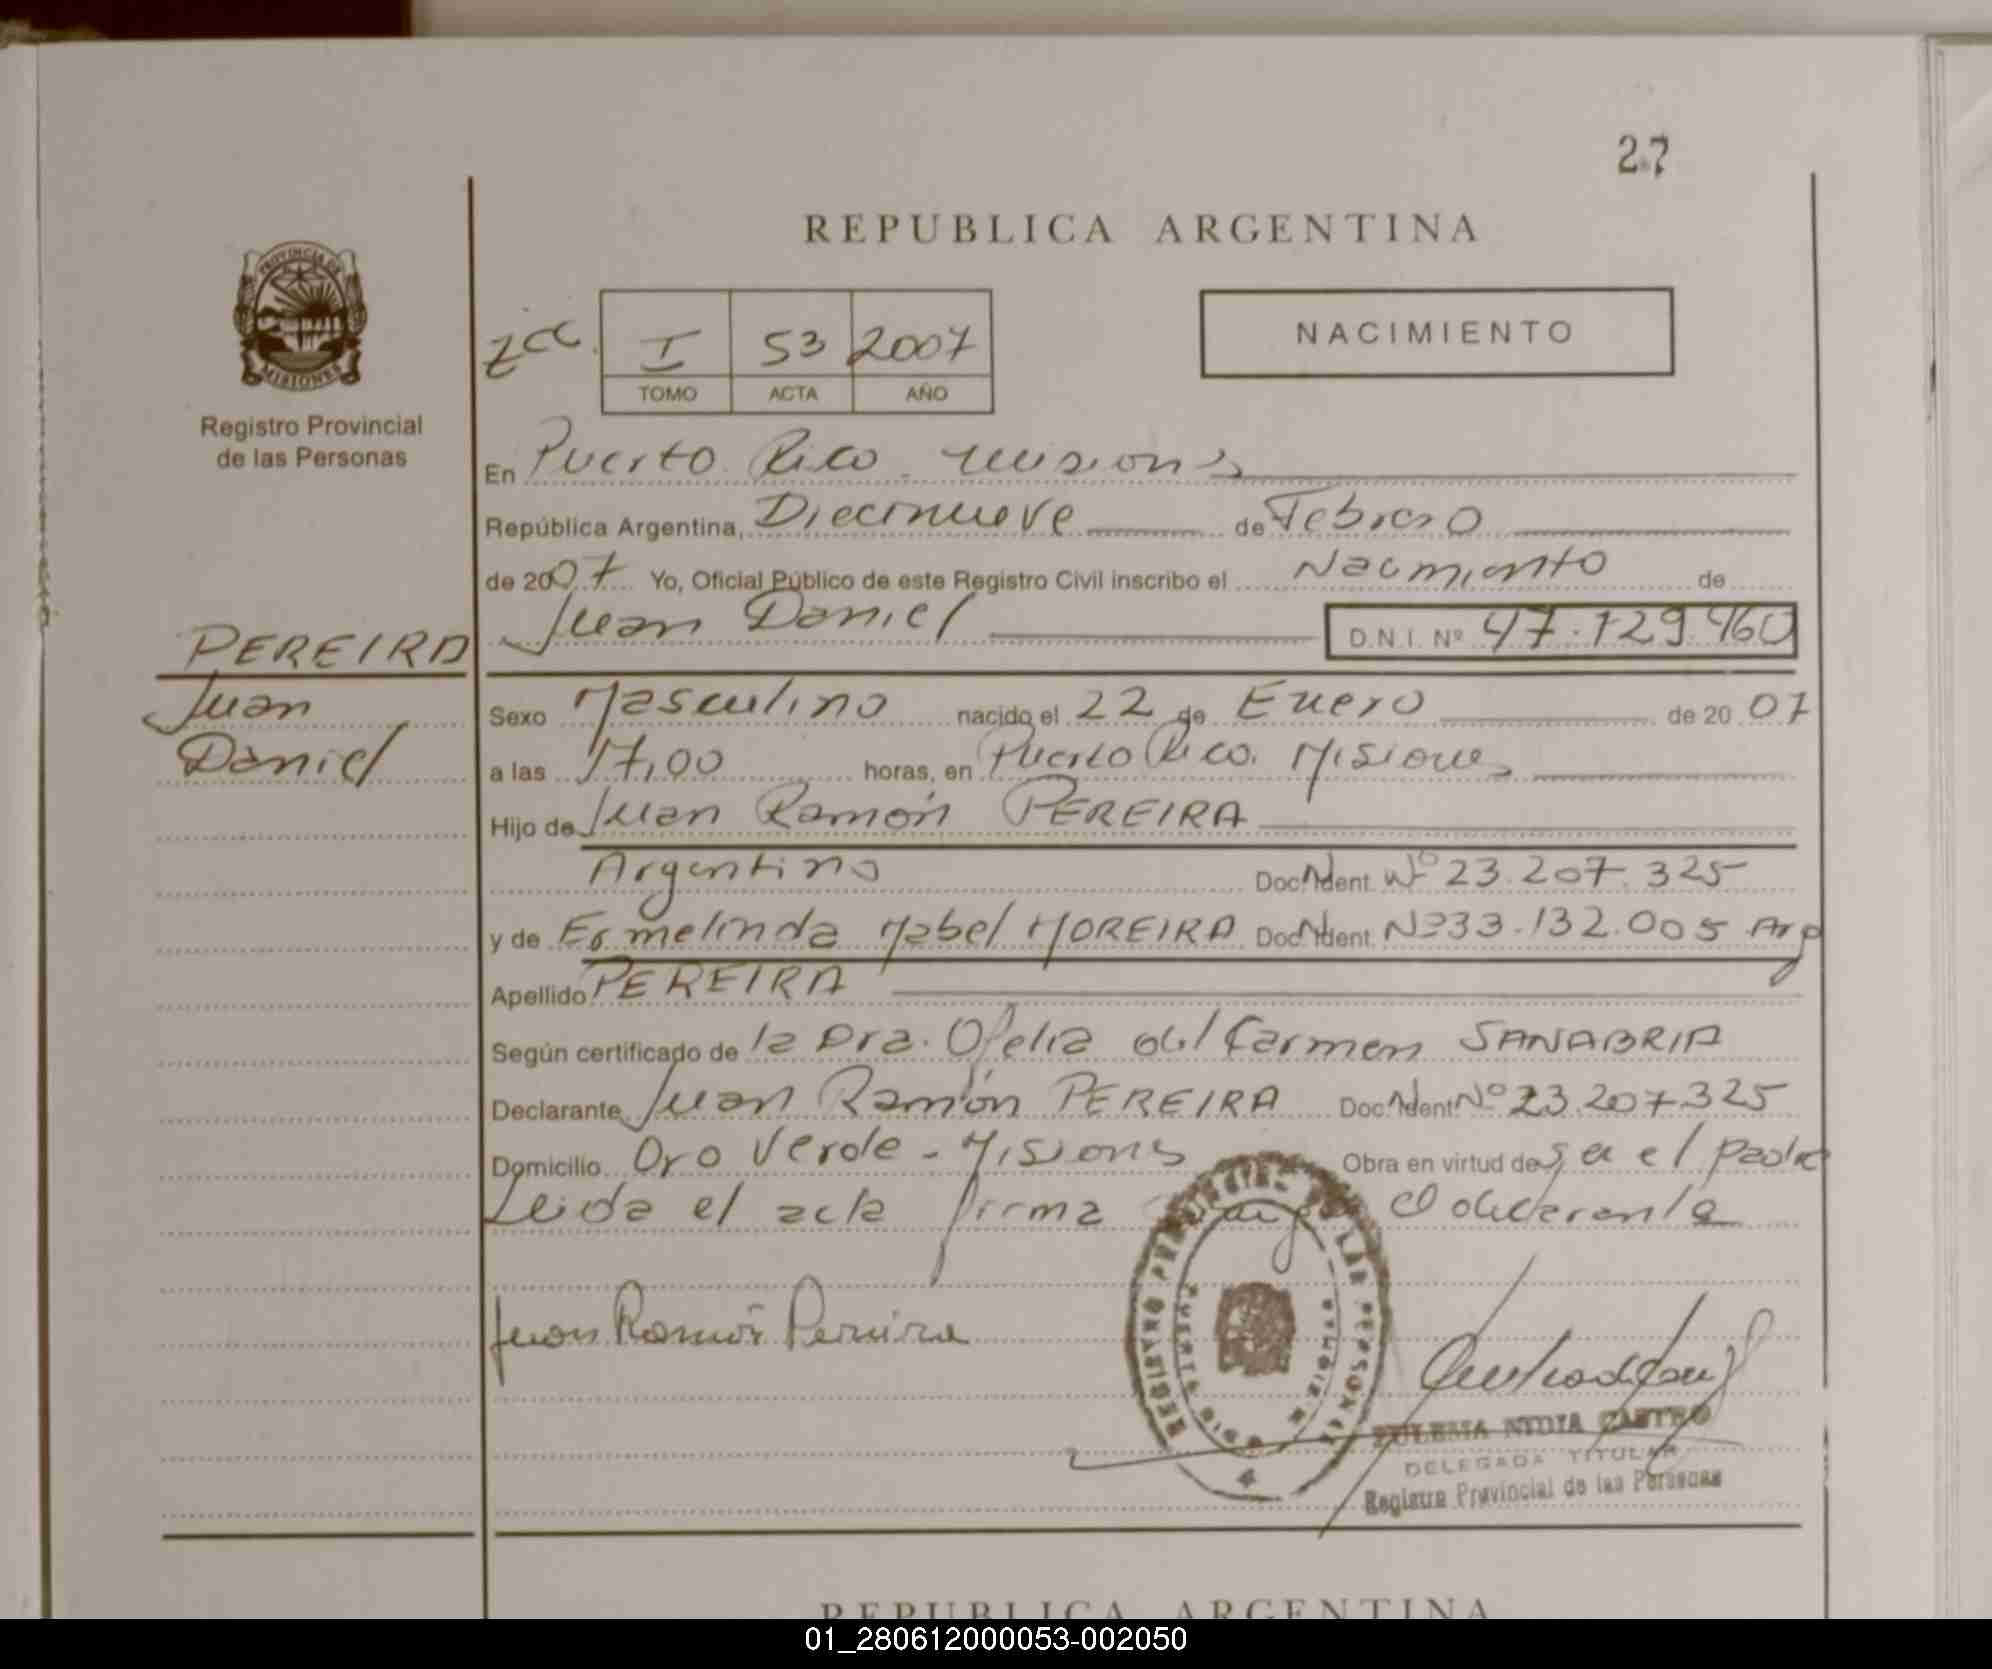 27
REPUBLICA ARGENTINA
PROVINCIA DE
MISIONES
Registro Provincial
de las Personas
NACIMIENTO
I 53 2007
TOMO ACTA AÑO
En Puerto Rico - Misiones
República Argentina, Diecinueve de Febrero
de 2007 Yo, Oficial Público de este Registro Civil inscribo el Nacimiento de
Juan Daniel D.N.I. Nº 47.129.460
PEREIRA
Juan
Daniel
Sexo Masculino nacido el 22 de Enero de 2007
a las 17,00 horas, en Puerto Rico. Misiones
Hijo de Juan Ramón PEREIRA
Argentino Doc. Ident. Nº 23.207.325
y de Ermelinda Mabel MOREIRA Doc. Ident. Nº 33.132.005 Arg
Apellido PEREIRA
Según certificado de la Dra. Ofelia del Carmen SANABRIA
Declarante Juan Ramón PEREIRA Doc. Ident. Nº 23.207.325
Domicilio Oro Verde - Misiones Obra en virtud de ser el padre
Leida el acta firma el declarante
Juan Ramón Pereira
REGISTRO PROVINCIAL DE LAS PERSONAS
PUERTO RICO MISIONES
4
NIDIA CASTRO
DELEGADA TITULAR
Registro Provincial de las Personas
REPUBLICA ARGENTINA
01_280612000053-002050